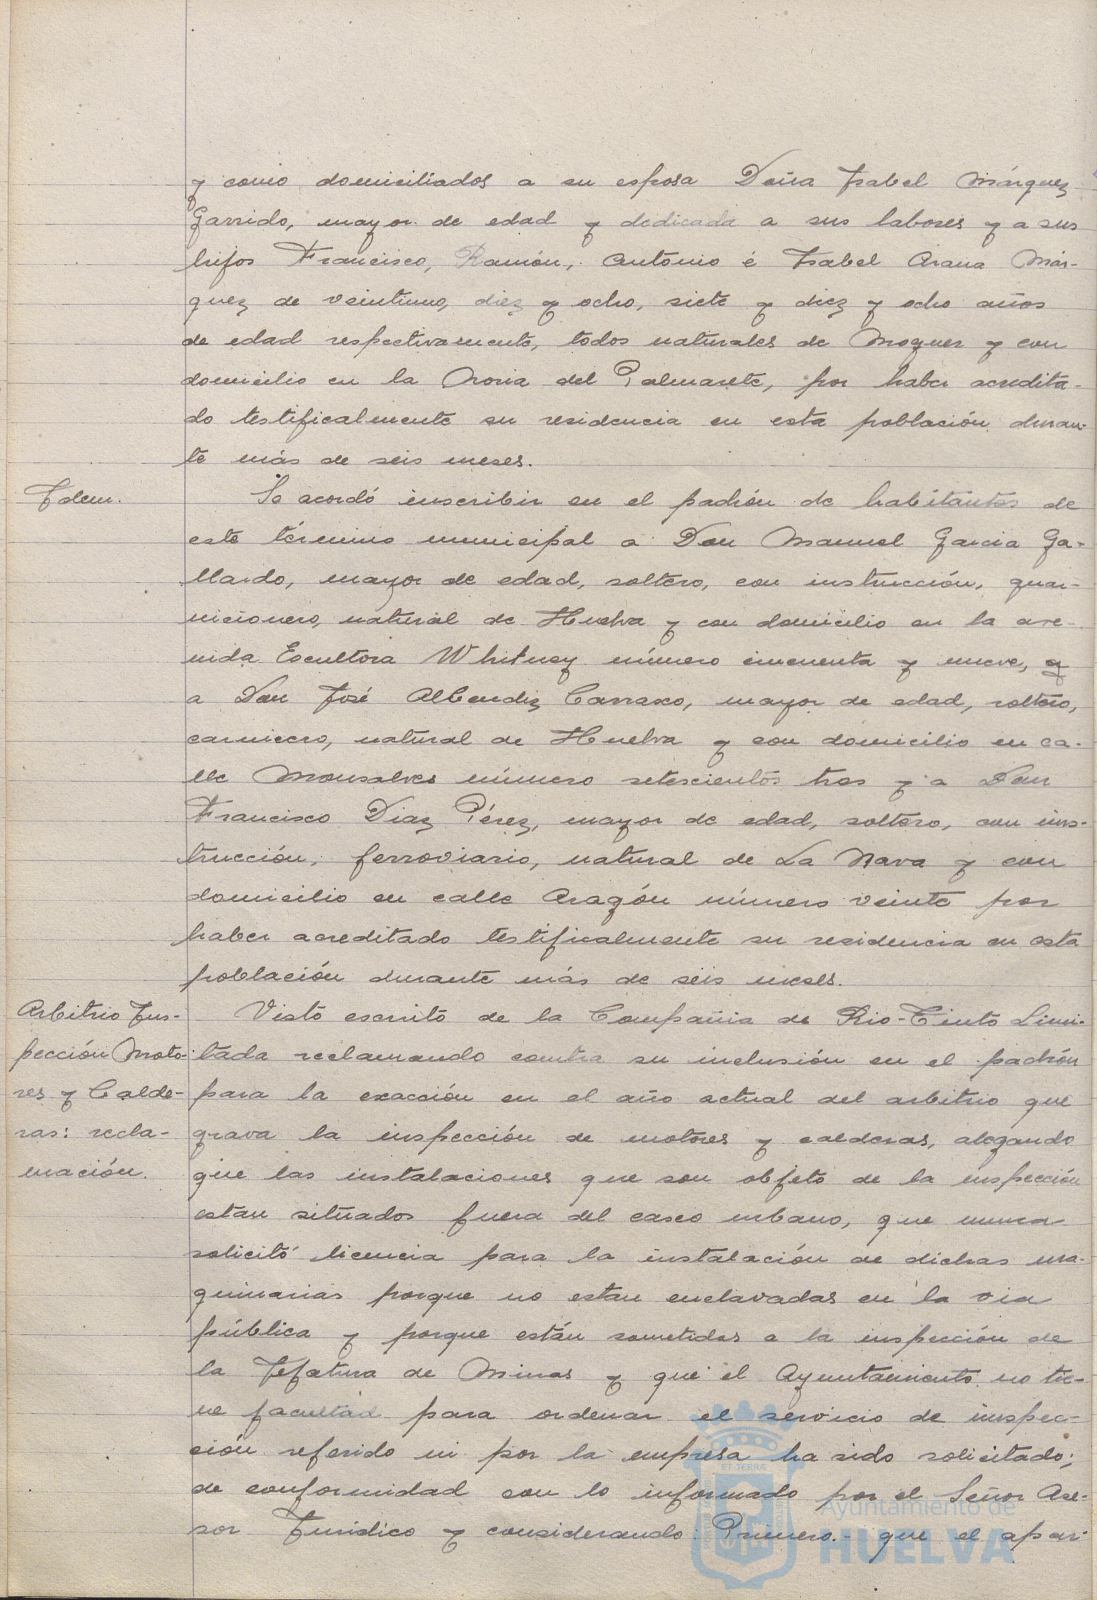 y como domiciliados a su esposa Doña Isabel Márquez
Garrido, mayor de edad y dedicada a sus labores y a sus
hijos Francisco, Ramón, Antonio é Isabel Arana Már-
quez de veintiuno, diez y ocho, siete y diez y ocho años
de edad respectivamente, todos naturales de Moguer y con
domicilio en la Noria del Palmarete, por haber acredita-
do testificalmente su residencia en esta población duran-
te más de seis meses.
Idem.
Se acordó inscribir en el padrón de habitantes de
este término municipal a Don Manuel Garcia Ga-
llardo, mayor de edad, soltero, con instrucción, guar-
nicionero, natural de Huelva y con domicilio en la ave-
nida Escultora Whitney número cincuenta y nueve,
a Don José Albendiz Carrasco, mayor de edad, soltero,
carnicero, natural de Huelva y con domicilio en ca-
lle Monsalves número setescientos tres y a Don
Francisco Diaz Pérez, mayor de edad, soltero, con ins-
trucción, ferroviario, natural de La Nava y con
domicilio en calle Aragón número veinte por
haber acreditado testificalmente su residencia en esta
población durante más de seis meses.
Arbitrio Ins-
pección Moto-
res y Calde-
ras: recla-
mación.
Visto escrito de la Compañia de Rio-Tinto Limi-
tada reclamando contra su inclusión en el padrón
para la exacción en el año actual del arbitrio que
grava la inspección de motores y calderas, alegando
que las instalaciones que son objeto de la inspección
estan situados fuera del casco urbano, que nunca
solicitó licencia para la instalación de dichas ma-
quinarias porque no estan enclavadas en la via
pública y porque están sometidas a la inspección de
la Jefatura de Minas y que el Ayuntamiento no tie-
ne facultad para ordenar el servicio de inspec-
ción referido ni por la empresa ha sido solicitado;
de conformidad con lo informado por el Señor Ase-
sor Juridico y considerando: Primero.- que el apar-
Ayuntamiento de
HUELVA